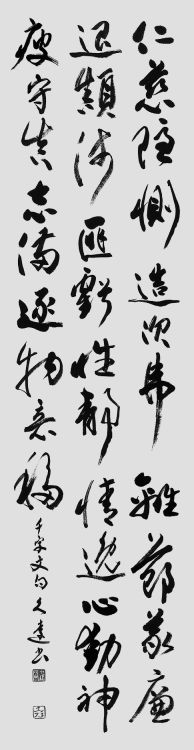 仁慈隱惻造次弗離節義廉
退顛沛匪虧性靜情逸心動神
疲守真志滿逐物意移
千字文句久達書